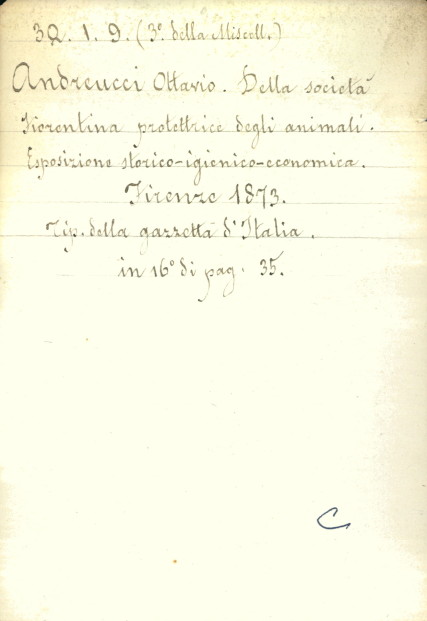 32. 1. 9. (3º della Miscell.)
Andreucci Ottavio. Della società
Fiorentina protettrice degli animali.
Esposizione storico-igienico-economica.
Firenze 1873.
Tip. della gazzetta d'Italia.
in 16º di pag. 35.
C